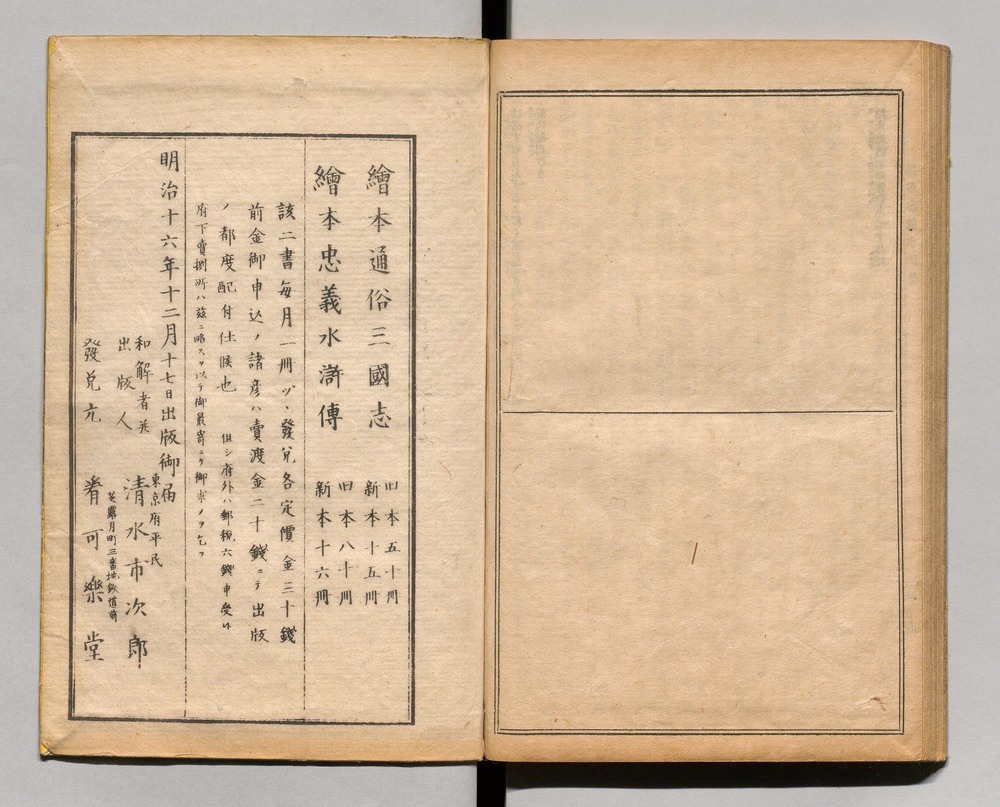 繪本通俗三國志
旧本五十冊
新本十五冊
繪本忠義水滸傳
旧本八十冊
新本十六冊
該二書毎月一冊ヅヽ發兌各定價金三十錢
前金御申込ノ諸彦ハ賣渡金二十錢ニテ出版
ノ都度配付仕候也 但シ府外ハ郵税六錢申受候
府下賣捌所ハ茲ニ略ス ヲ以テ御最寄ニテ御求メヲ乞フ
明治十六年十二月十七日出版御届
東京府平民
和解者并
出版人 清水市次郎
芝露月町三番地鉄道前
發兌元 耆可樂堂